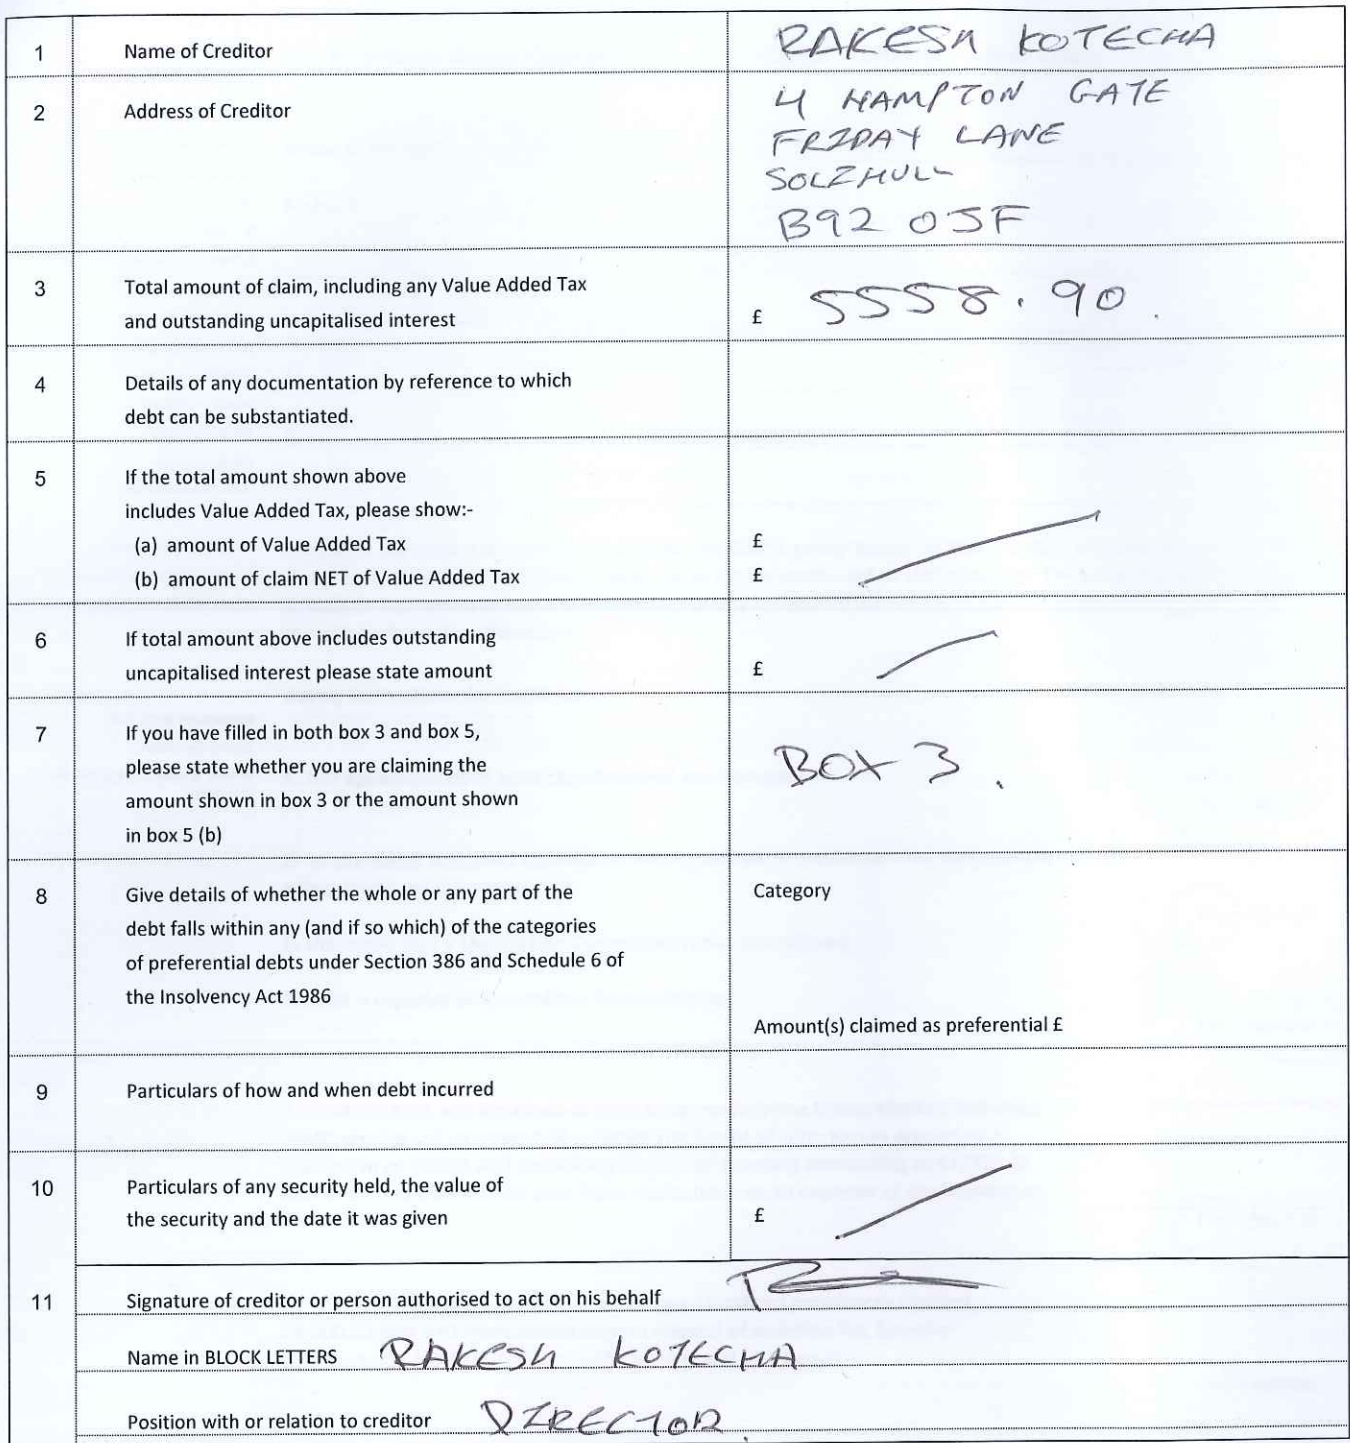 1 Name of Creditor RAKESH KOTECHA
2 Address of Creditor 4 HAMPTON GATE
FRIDAY LANE
SOLIHULL
B92 0JF
3 Total amount of claim, including any Value Added Tax
and outstanding uncapitalised interest £ 5558.90.
4 Details of any documentation by reference to which
debt can be substantiated.
5 If the total amount shown above
includes Value Added Tax, please show:-
(a) amount of Value Added Tax £
(b) amount of claim NET of Value Added Tax £
6 If total amount above includes outstanding
uncapitalised interest please state amount £
7 If you have filled in both box 3 and box 5,
please state whether you are claiming the
amount shown in box 3 or the amount shown
in box 5 (b) BOX 3.
8 Give details of whether the whole or any part of the Category
debt falls within any (and if so which) of the categories
of preferential debts under Section 386 and Schedule 6 of
the Insolvency Act 1986
Amount(s) claimed as preferential £
9 Particulars of how and when debt incurred
10 Particulars of any security held, the value of
the security and the date it was given £
11 Signature of creditor or person authorised to act on his behalf
Name in BLOCK LETTERS RAKESH KOTECHA
Position with or relation to creditor DIRECTOR.